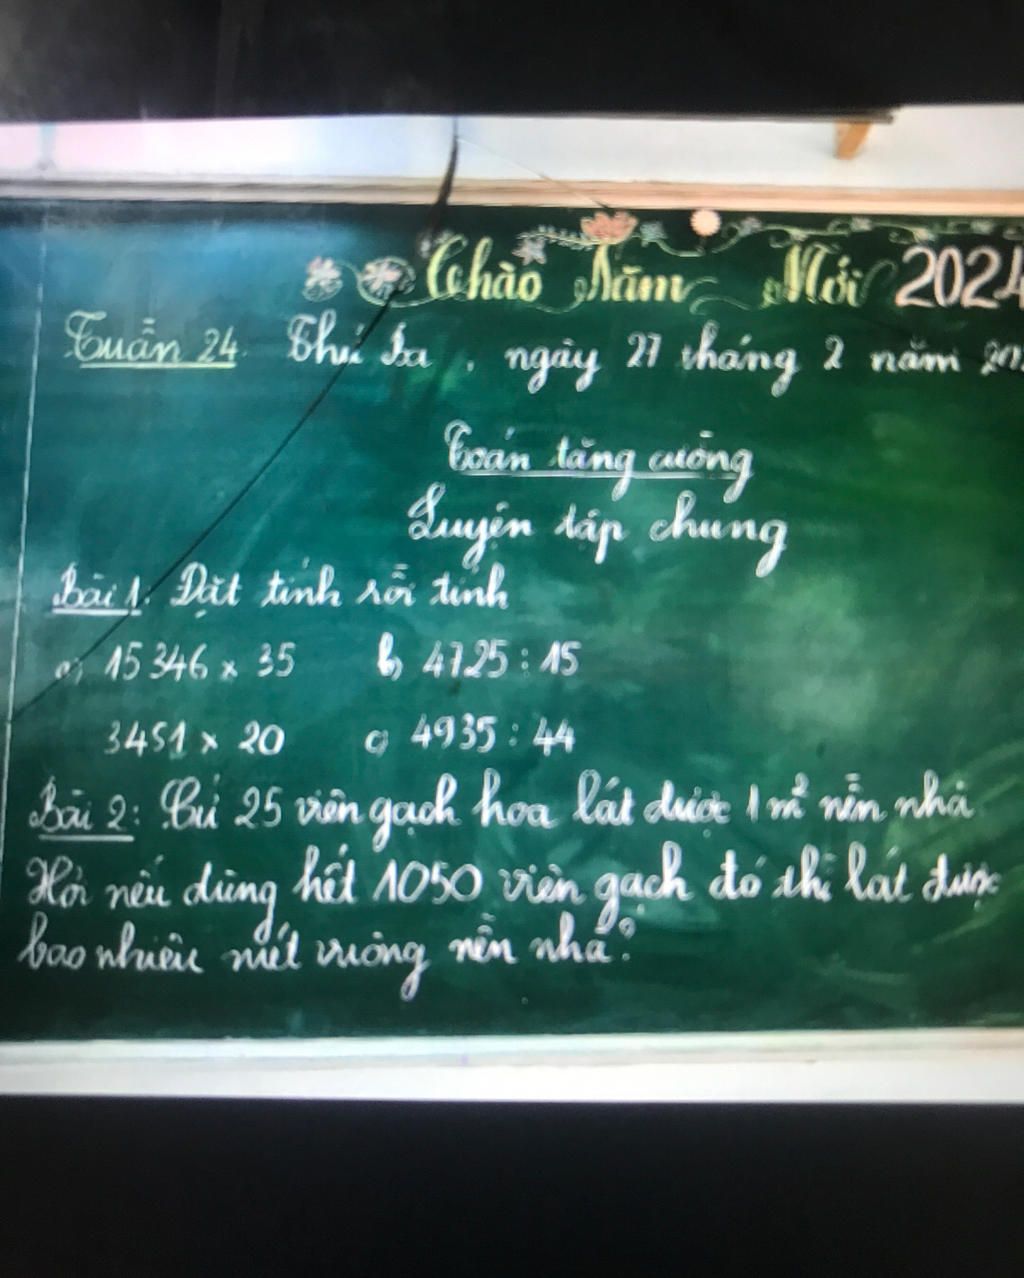 Chào Năm Mới 2024
Tuần 24. Thứ ba, ngày 27 tháng 2 năm
Toán tăng cường
Luyện tập chung
Bài 1. Đặt tính rồi tính
a) 15346 x 35 b) 4725 : 15
3451 x 20 c) 4935 : 44
Bài 2: Cứ 25 viên gạch hoa lát được 1m² nền nhà.
Hỏi nếu dùng hết 1050 viên gạch đó thì lát được
bao nhiêu mét vuông nền nhà?